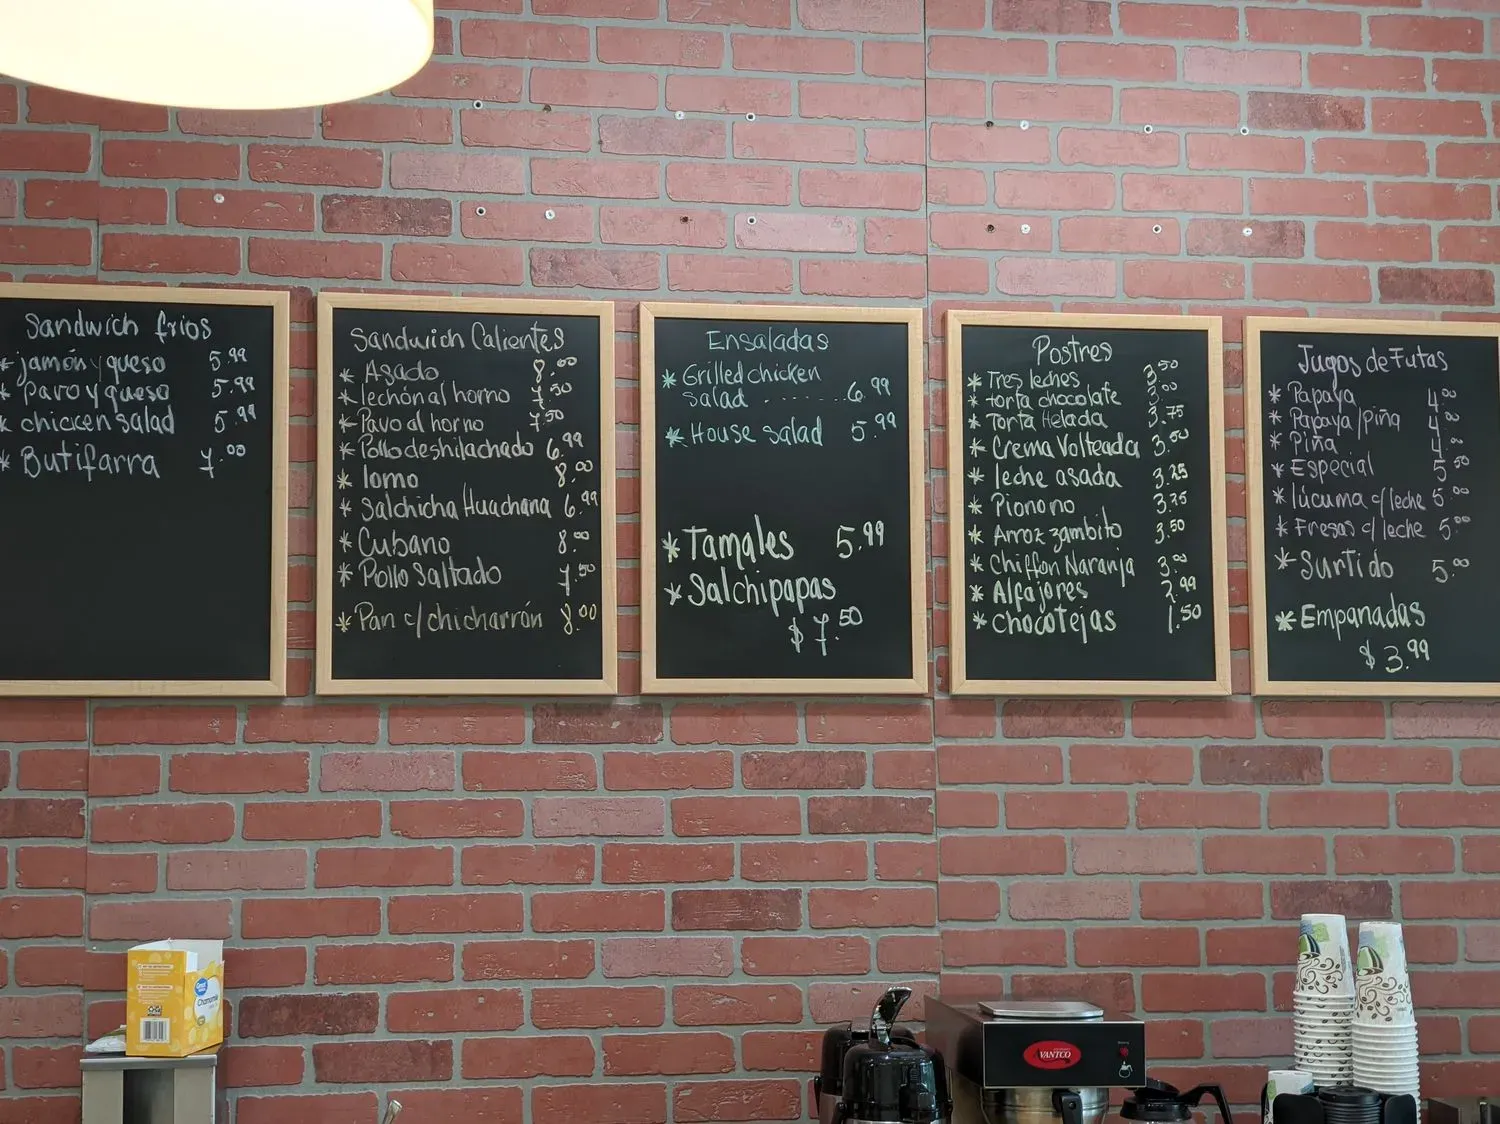 Sandwich frios
* jamón y queso 5.99
* Pavo y queso 5.99
* chicken salad 5.99
* Butifarra 7.00
Sandwich Calientes
* Asado 8.00
* lechón al horno 7.50
* Pavo al horno 7.50
* Pollo deshilachado 6.99
* lomo 8.00
* Salchicha Huachana 6.99
* Cubano 8.00
* Pollo Saltado 7.50
* Pan c/ chicharrón 8.00
Ensaladas
* Grilled chicken
salad . . . . . . . . 6.99
* House salad 5.99
* Tamales 5.99
* Salchipapas
$ 7.50
Postres
* Tres leches 3.50
* torta chocolate 3.00
* Torta Helada 3.75
* Crema Volteada 3.50
* leche asada 3.25
* Pionono 3.75
* Arroz zambito 3.50
* Chiffon Naranja 3.00
* Alfajores 2.99
* chocotejas 1.50
Jugos de Futas
* Papaya 4.00
* Papaya/Piña 4.00
* Piña 4.00
* Especial 5.50
* lúcuma c/leche 5.00
* Fresas c/leche 5.00
* Surtido 5.00
* Empanadas
$ 3.99
Great Value
Chamomile
AVANTCO